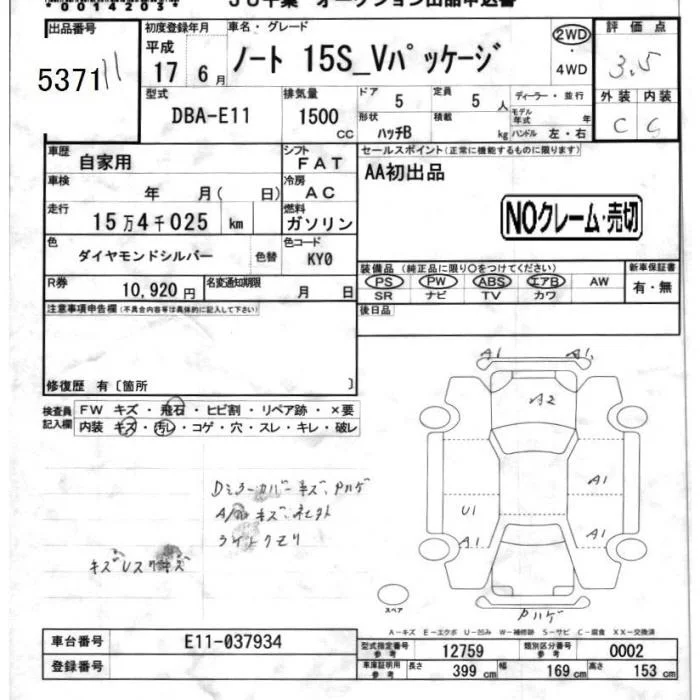 00142034
JU千葉 オークション出品申込書
出品番号 初度登録年月 車名・グレード 2WD・4WD 評価点
5371 平成17年6月 ノート 15S_Vパッケージ 3.5
外装 内装
C C
型式 排気量 ドア 定員 ディーラー・並行
DBA-E11 1500CC 5 5人 モデル年式 年
形状 積載
ハッチB kg ハンドル 左・右
車歴 シフト セールスポイント(正常に機能するものに限ります)
自家用 FAT AA初出品
車検 冷房
年 月( 日) AC
NOクレーム・売切
走行 燃料
15万4千025km ガソリン
色 色コード
ダイヤモンドシルバー 色替 KY0
装備品 (純正品に限り○をつけてください) 新車保証書
PS PW ABS エアB AW 有・無
SR ナビ TV カワ
R券 名変通知期限
10,920円 月 日
注意事項申告欄(不具合内容等は具体的に記入して下さい) 後日品
修復歴 有〔箇所 〕
検査員記入欄
FW キズ・飛石・ヒビ割・リペア跡・×要
内装 キズ・汚レ・コゲ・穴・スレ・キレ・破レ
A1 A1
A2
Dミラーカバーキズ、ハゲ
A1
U1
A1 A1
ライトクモリ
スペア
A-キズ E-エクボ U-凹み W-補修跡 S-サビ C-腐食 XX-交換済
車台番号 E11-037934
登録番号
型式指定番号 参考 12759 類別区分番号 参考 0002
車庫証明用 参考 長さ 399cm 幅 169cm 高さ 153cm